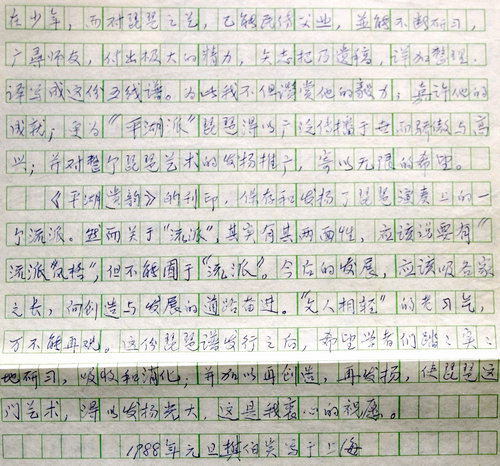 在少年,而对琵琶之艺,已能克传父业,并能不断研习,
广寻师友,付出极大的精力,矢志把乃遗稿,详加整理.
译写成这份五线谱。为此我不但讚赏他的毅力,嘉许他的
成就;更为“平湖派”琵琶得以广泛传播于世而骄傲与高
兴;并对整个琵琶艺术的发扬推广,寄以无限的希望。
《平湖遗韵》的刊印,保存和发扬了琵琶演奏上的一
个流派。然而关于“流派”,其实有其两面性,应该说要有“
流派”“风格”,但不能囿于“流派”。今后的发展,应该吸各家
之长,向创造与发展的道路奋进。“文人相轻”的老习气,
万不能再现。这份琵琶谱发行之后,希望学者们踏踏实实
地研习,吸收和消化;并加以再创造,再发扬,使琵琶这
门艺术,得以发扬光大,这是我衷心的祝愿。
1988年元旦樊伯炎写于上海